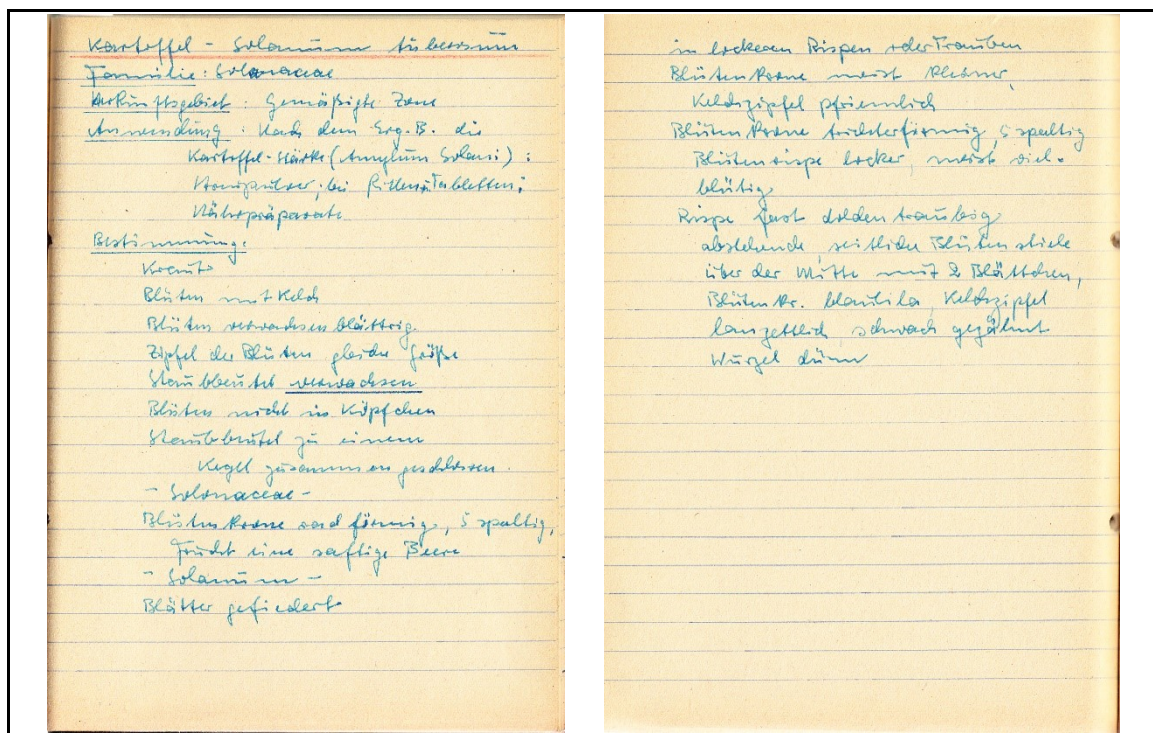 Kartoffel - Solanum tuberosum
Familie: Solanaceae
Herkunftsgebiet: Gemäßigte Zone
Anwendung: Nach dem Erg. B. die
Kartoffel-Stärke (Amylum Solani):
bei Pillen, Tabletten;
Nährpräparate
Bestimmung:
Kraut
Blüten mit Kelch
Blüten verwachsenblättrig
Zipfel der Blüten gleiche Größe
Staubbeutel verwachsen
Blüten nicht in Köpfchen
Staubbeutel zu einem
Kegel zusammen geschlossen.
- Solonaceae -
Blütenkrone radförmig, 5 spaltig,
Frucht eine saftige Beere
- Solanum -
Blätter gefiedert
in lockeren Rispen oder Trauben
Blütenkrone meist kleiner,
Kelchzipfel pfriemlich
Blütenkrone trichterförmig, 5 spaltig
Blütenrispe locker, meist viel-
blütig
Rispe fast doldentraubig
abstehende, seitliche Blütenstiele
über der Mitte mit 2 Blättchen,
Blütenkr. blaulila, Kelchzipfel
lanzettlich, schwach gezähnt
Wurzel dünn